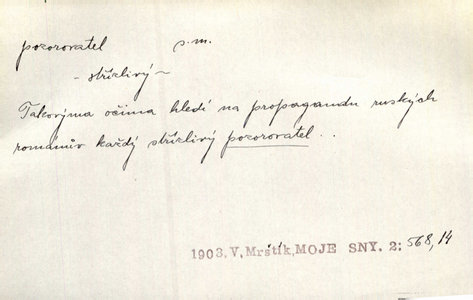 pozorovatel s. m.
- střízlivý ~
Takovýma očima hledí na propagandu ruských
románův každý střízlivý pozorovatel ..
1903, V, Mrštík, MOJE SNY. 2: 568, 14